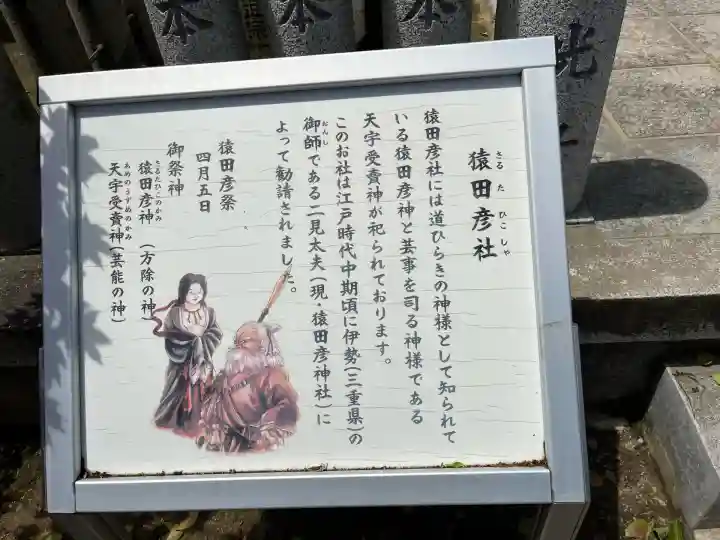 猿田彦社
さるたひこしゃ
猿田彦社には道ひらきの神様として知られて
いる猿田彦神と芸事を司る神様である
天宇受賣神が祀られております。
このお社は江戸時代中期頃に伊勢(三重県)の
御師である二見太夫(現・猿田彦神社)に
おんし
よって勧請されました。
猿田彦祭
四月五日
御祭神
猿田彦神(方除の神)
さるたひこのかみ
天宇受賣神(芸能の神)
あめのうずめのかみ
本
本
本